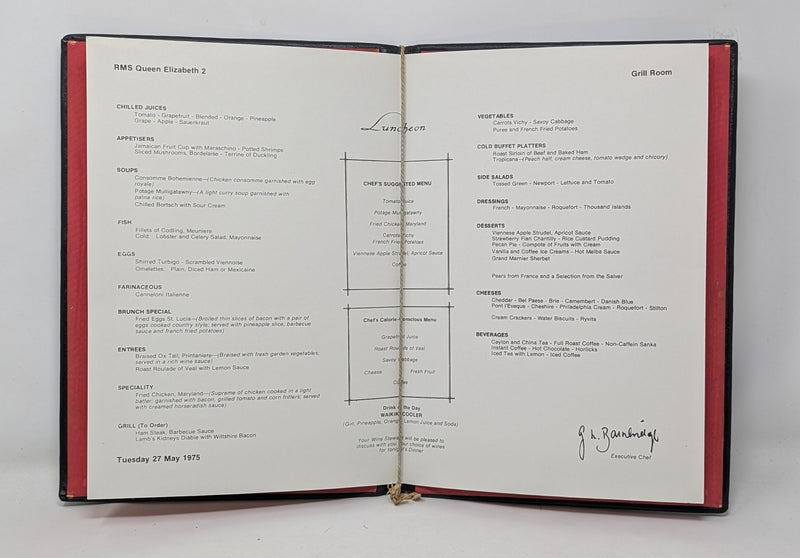 RMS Queen Elizabeth 2
CHILLED JUICES
Tomato - Grapefruit - Blended - Orange - Pineapple
Grape - Apple - Sauerkraut
APPETISERS
Jamaican Fruit Cup with Maraschino - Potted Shrimps
Sliced Mushrooms, Bordelaise - Terrine of Duckling
SOUPS
Consomme Bohemienne—(Chicken consomme garnished with egg
royale)
Potage Mulligatawny—(A light curry soup garnished with
patna rice)
Chilled Bortsch with Sour Cream
FISH
Fillets of Codling, Meuniere
Cold: Lobster and Celery Salad, Mayonnaise
EGGS
Shirred Turbigo - Scrambled Viennoise
Omelettes: Plain, Diced Ham or Mexicaine
FARINACEOUS
Canneloni Italienne
BRUNCH SPECIAL
Fried Eggs St. Lucia—(Broiled thin slices of bacon with a pair of
eggs cooked country style; served with pineapple slice, barbecue
sauce and french fried potatoes)
ENTREES
Braised Ox Tail, Printaniere—(Braised with fresh garden vegetables,
served in a rich wine sauce)
Roast Roulade of Veal with Lemon Sauce
SPECIALITY
Fried Chicken, Maryland—(Supreme of chicken cooked in a light
batter; garnished with bacon, grilled tomato and corn fritters; served
with creamed horseradish sauce)
GRILL (To Order)
Ham Steak, Barbecue Sauce
Lamb's Kidneys Diable with Wiltshire Bacon
Tuesday 27 May 1975
Luncheon
CHEF'S SUGGESTED MENU
Tomato Juice
Potage Mulligatawny
Fried Chicken, Maryland
Carrots Vichy
French Fried Potatoes
Viennese Apple Strudel, Apricot Sauce
Coffee
Chef's Calorie-Conscious Menu
Grapefruit Juice
Roast Roulade of Veal
Savoy Cabbage
Cheese Fresh Fruit
Coffee
Drink of the Day
WAIKIKI COOLER
(Gin, Pineapple, Orange, Lemon Juice and Soda)
Your Wine Steward will be pleased to
discuss with you your choice of wines
for tonight's Dinner
Grill Room
VEGETABLES
Carrots Vichy - Savoy Cabbage
Puree and French Fried Potatoes
COLD BUFFET PLATTERS
Roast Sirloin of Beef and Baked Ham
Tropicana—(Peach half, cream cheese, tomato wedge and chicory)
SIDE SALADS
Tossed Green - Newport - Lettuce and Tomato
DRESSINGS
French - Mayonnaise - Roquefort - Thousand Islands
DESSERTS
Viennese Apple Strudel, Apricot Sauce
Strawberry Flan Chantilly - Rice Custard Pudding
Pecan Pie - Compote of Fruits with Cream
Vanilla and Coffee Ice Creams - Hot Melba Sauce
Grand Marnier Sherbet
Pears from France and a Selection from the Salver
CHEESES
Cheddar - Bel Paese - Brie - Camembert - Danish Blue
Pont l'Eveque - Cheshire - Philadelphia Cream - Roquefort - Stilton
Cream Crackers - Water Biscuits - Ryvita
BEVERAGES
Ceylon and China Tea - Full Roast Coffee - Non-Caffein Sanka
Instant Coffee - Hot Chocolate - Horlicks
Iced Tea with Lemon - Iced Coffee
G L. Bainbridge
Executive Chef